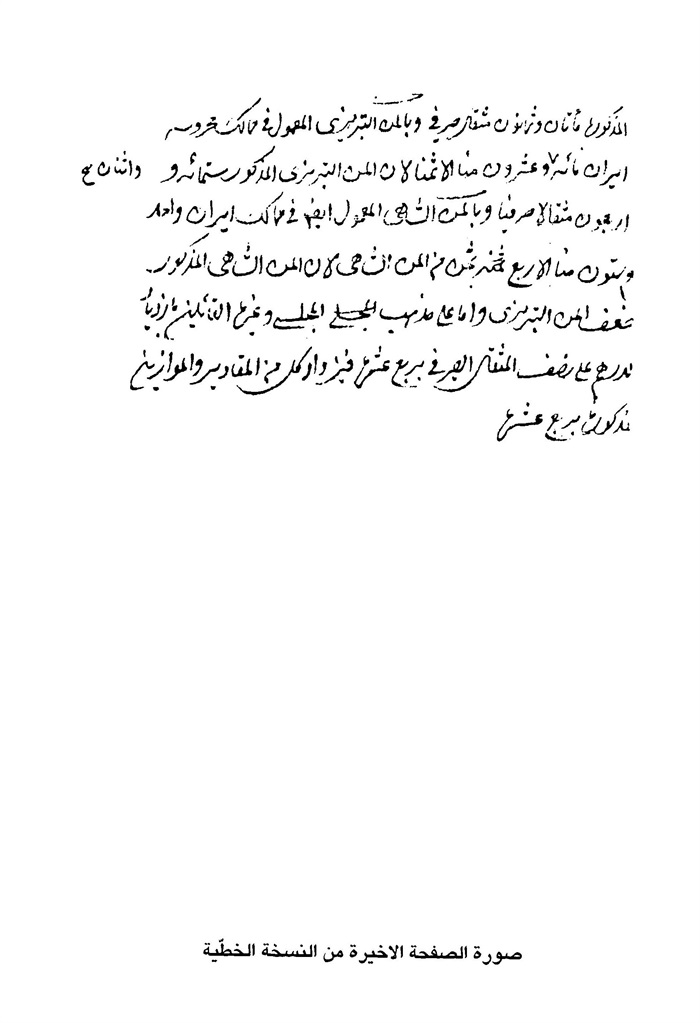 المذكور مأتان وثمانون مثقال صيرفي وبالمن التبريزي المعمول في ممالك محروسه
ايران مائة وعشرون منا الا ثمنا لان المن التبريزي المذكور ستمائه و
واثنان صح
اربعون مثقالا صرفيا وبالمن الشاهى المعمول ايضا في ممالك ايران واحد
وستون منا الا ربع من المن الشاهى لان المن الشاهى المذكور
ضعف المن التبريزى واما على مذهب المجلسي وغيره القائلين بازدياد
الدرهم على نصف المثقال الصيرفي بربع عشرها فيزداد كل من المقادير والموازين
المذكورة بربع عشرها
صورة الصفحة الاخيرة من النسخة الخطّية